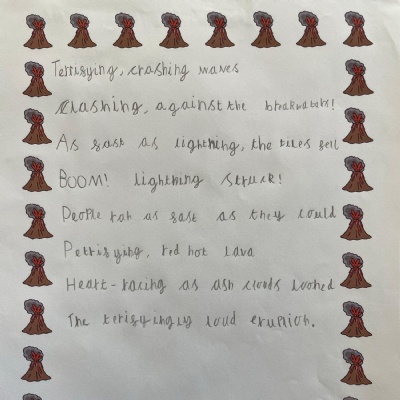 Terrifying, crashing waves
Clashing, against the breakwaters!
As fast as lightning, the tiles fell
BOOM! lightning struck!
People ran as fast as they could
Petrifying, red hot lava
Heart-racing as ash clouds loomed
The terifyingly loud eruption.